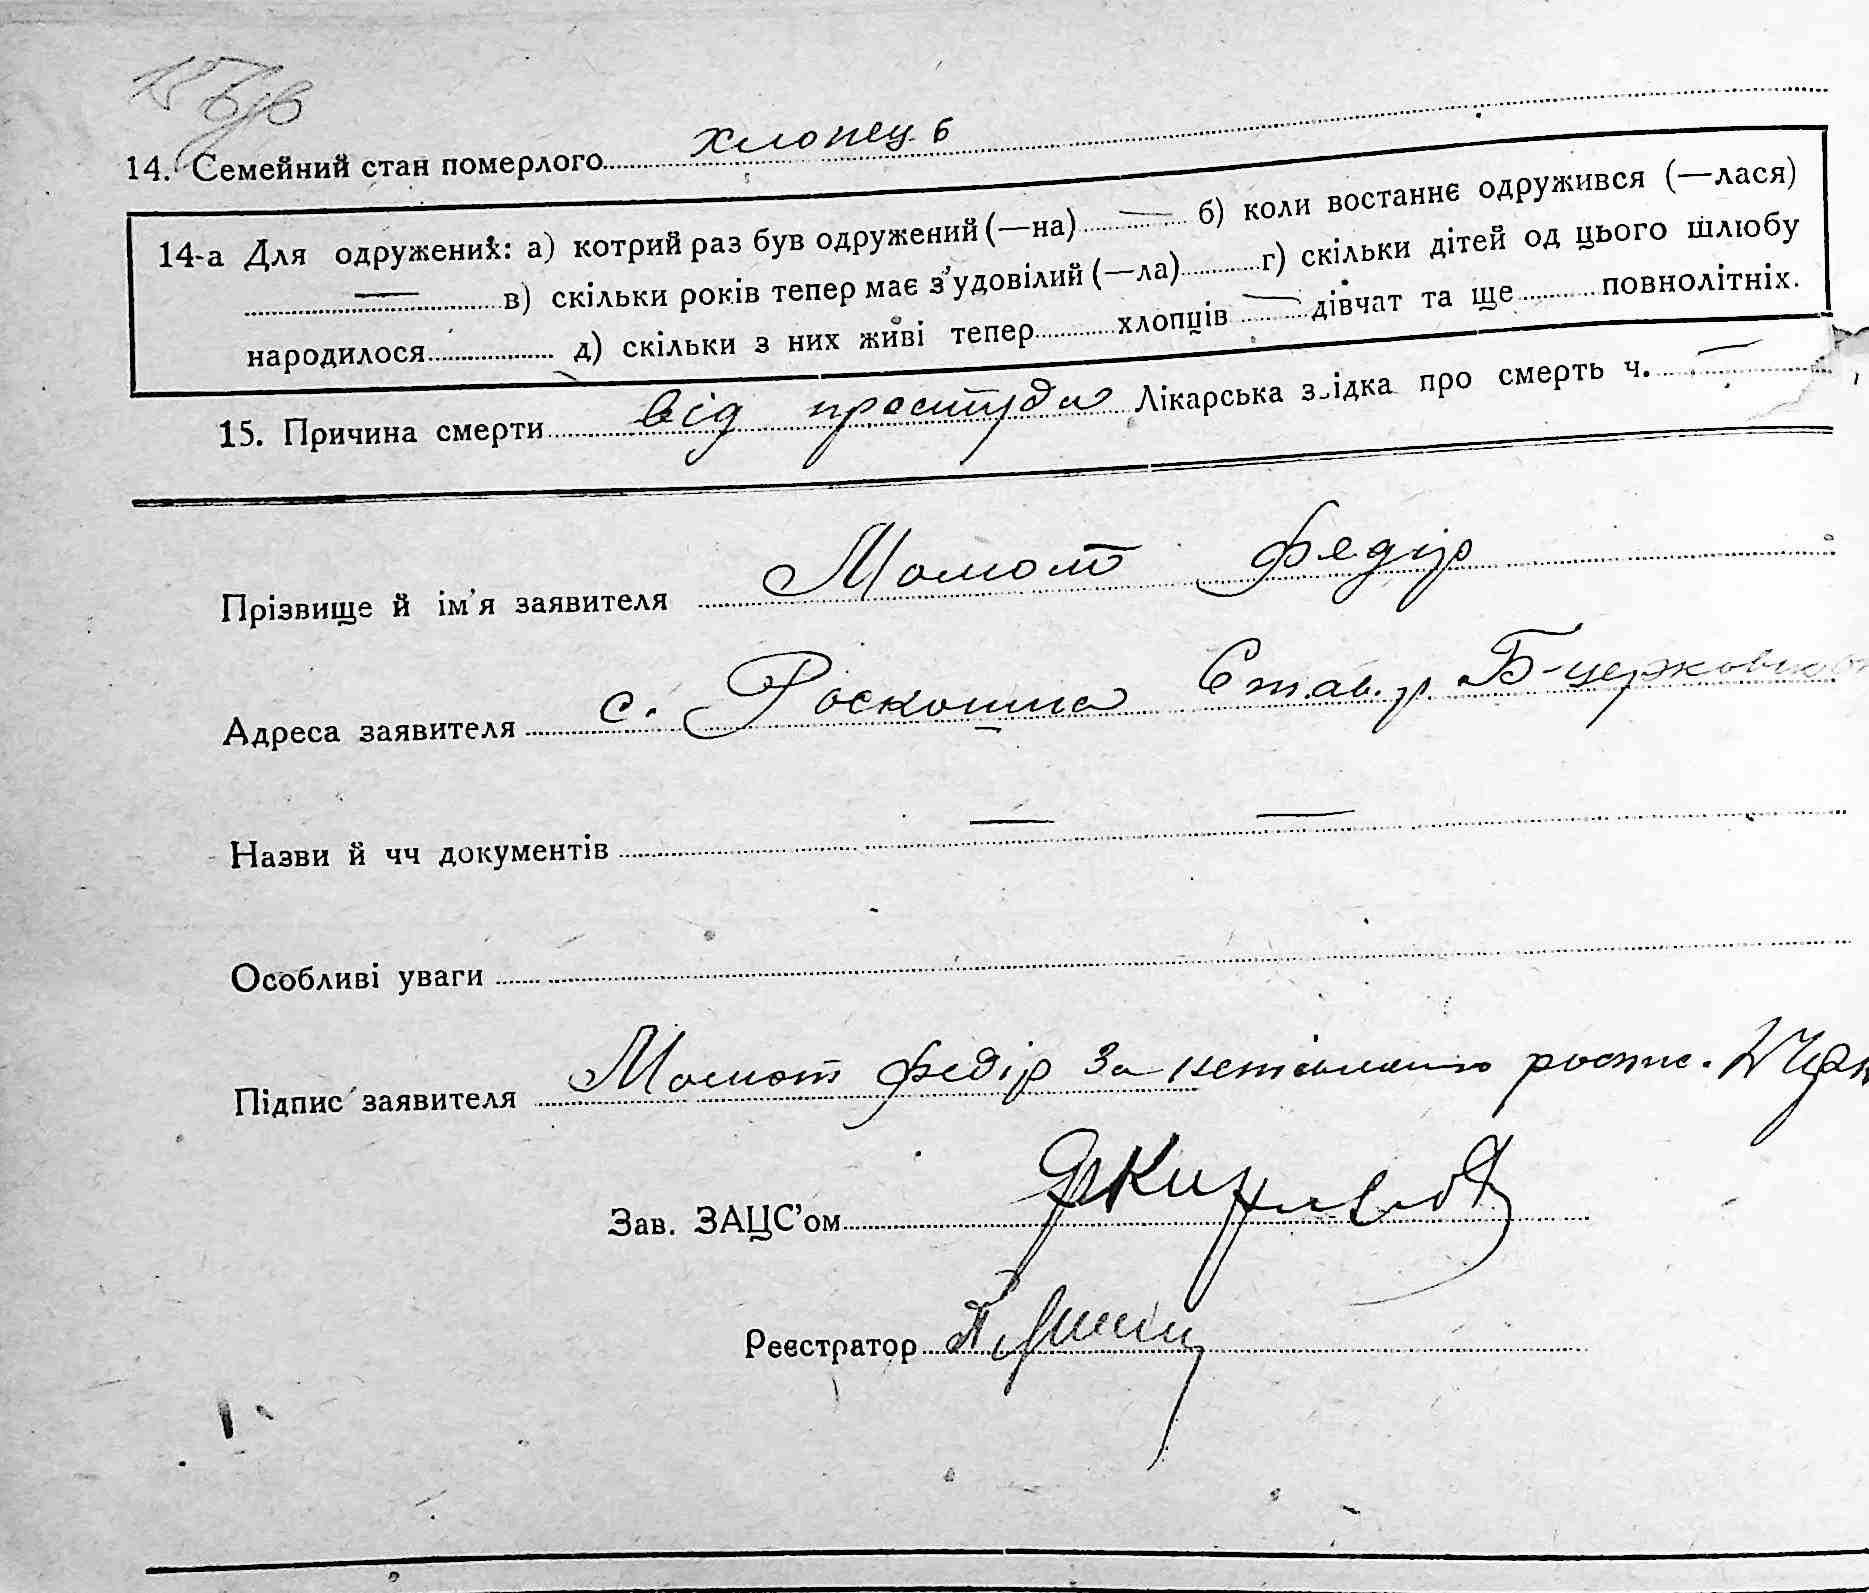 14. Семейний стан померлого хлопец 6
14-а Для одружених: а) котрий раз був одружений (—на) — б) коли востаннє одружився (—лася)
— в) скільки років тепер має з'удовілий (—ла) г) скільки дітей од цього шлюбу
народилося д) скільки з них живі тепер хлопців — дівчат та ще повнолітніх.
15. Причина смерти від простуди Лікарська звідка про смерть ч. —
Прізвище й ім'я заявителя Момот Федір
Адреса заявителя с. Роскошна Став. р. Б-церковсько
Назви й чч документів — —
Особливі уваги
Підпис заявителя Момот Федір За роспис.
Зав. ЗАЦС'ом
Реєстратор